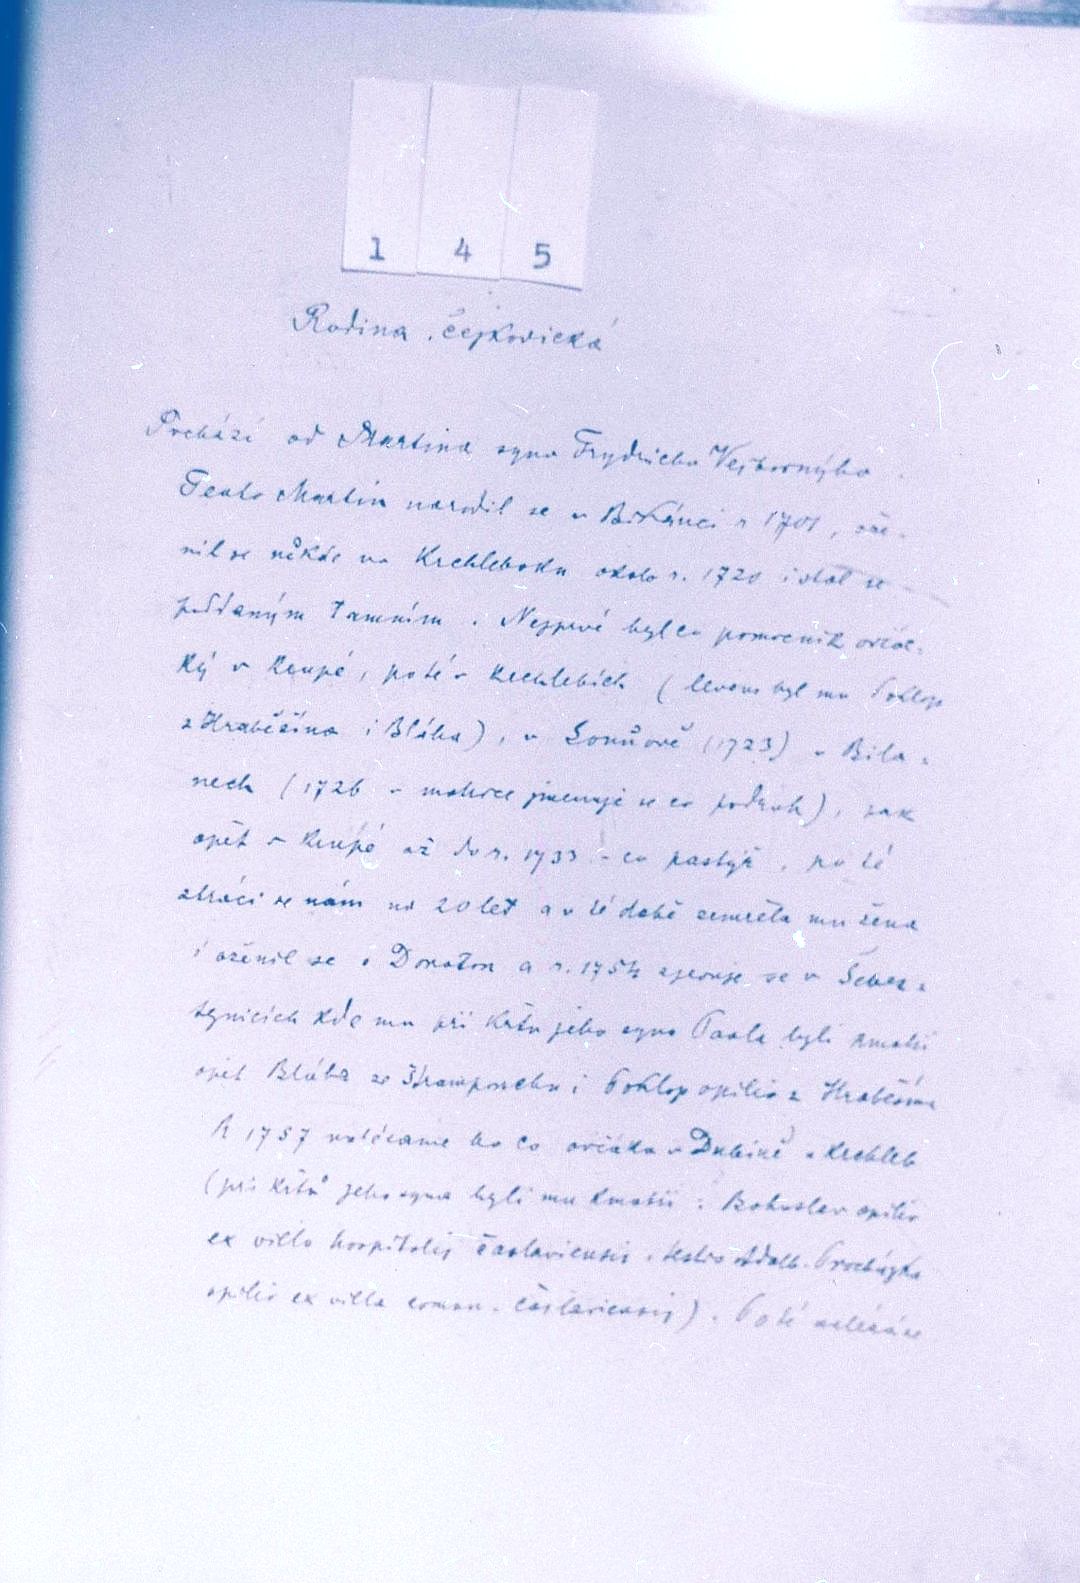 1 4 5
Rodina čejkovická
Pochází od Martina syna Frydricha Vejborného.
Tento Martin narodil se v Bikánci r 1701, ože-
nil se někde na Krchlebsku okolo r. 1720 i stal se
poddaným tamním. Nejprvé byl co pomocník ovčác-
ký v Krupé, poté v Krchlebích ( byl mu Poklop
z Hraběšína i Bláha), v (1723) v Bila-
nech (1726 v matrice jmenuje se co ), pak
opět v Krupé až do r. 1733 - co pastýř, po té
ztrácí se nám na 20 let a v té době zemřela mu žena
i oženil se s a r. 1754 zjevuje se v Šebes-
tynicích kde mu při křtu jeho syna Pavla byli kmotři
opět Bláha ze i Poklop opilio z Hraběšína
R 1757 nalézáme ho co ovčáka v Dubině u Krchleb
(při křtu jeho syna byli mu kmotři: Bohuslav opilio
ex villa hospitalis čáslaviensis, testis Adalb. Procházka
opilio ex villa comun. čáslaviensis). Poté nalézáme